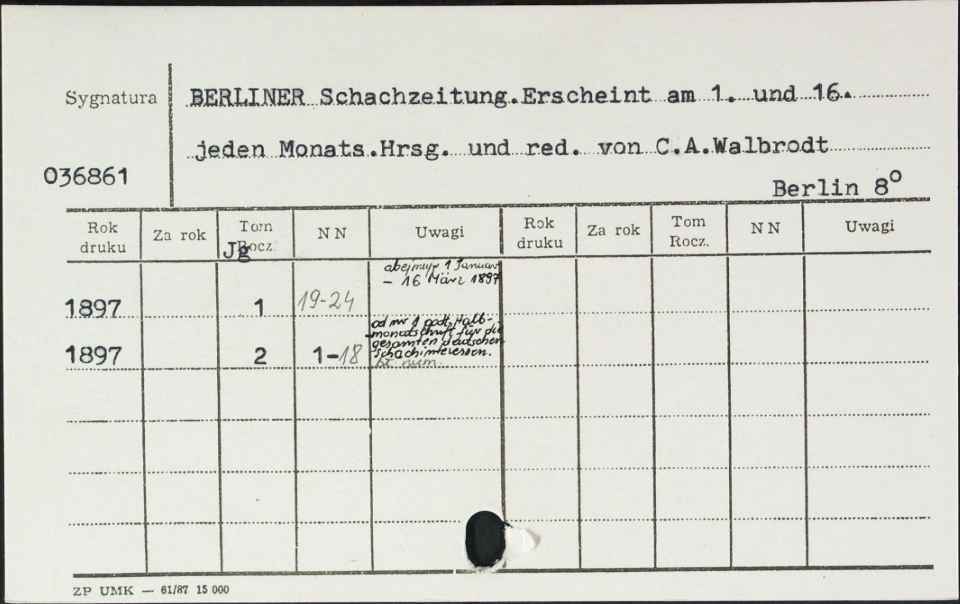 Sygnatura
BERLINER Schachzeitung.Erscheint am 1. und 16.
jeden Monats.Hrsg. und red. von C.A.Walbrodt
036861
Berlin 8°
Rok druku Za rok Tom Rocz. NN Uwagi Rok druku Za rok Tom Rocz. NN Uwagi
Jg
abejmuje 1 Januar
– 16 März 1897
1897 1 19-24
od nr 1 podt. Halb-
monatschrift für die
gesamten deutschen
Schachinteressen.
1897 2 1-18
num.
ZP UMK — 61/87 15 000